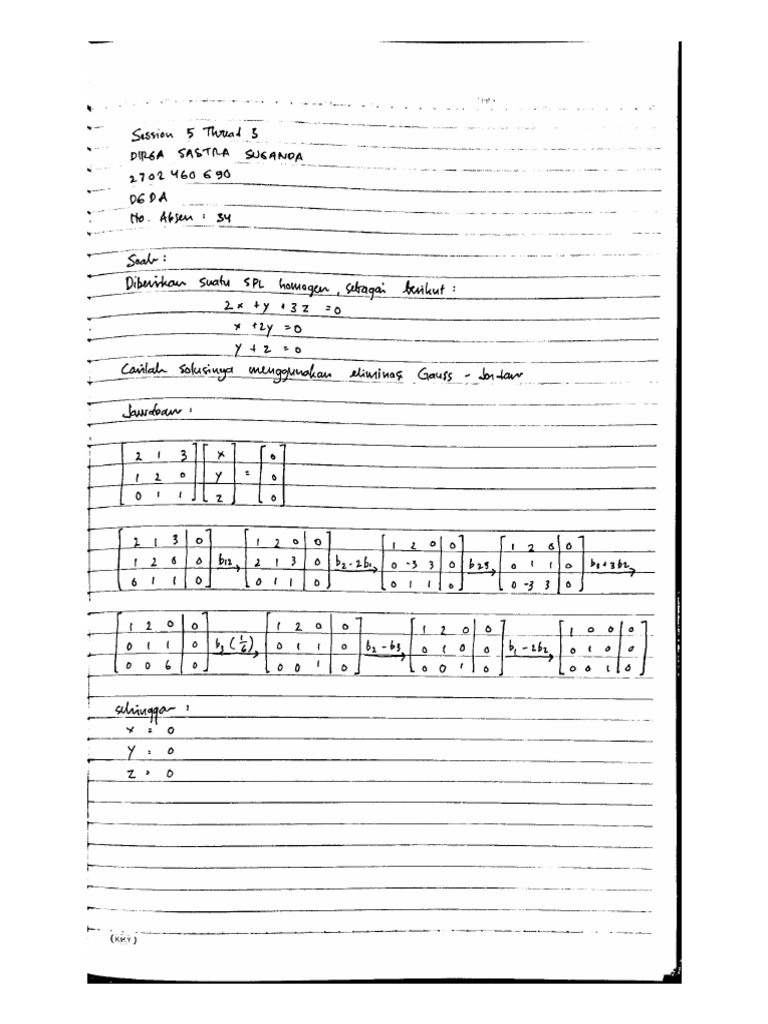 Session 5 Thread 3
DIRGA SASTRA SUGANDA
2702460690
DGDA
No. Absen : 34
Soal :
Diberikan suatu SPL homogen, sebagai berikut :
2x + y + 3z = 0
x + 2y = 0
y + z = 0
Carilah solusinya menggunakan eliminasi Gauss - Jordan
Jawaban :
[2 1 3] [x] [0]
[1 2 0] [y] = [0]
[0 1 1] [z] [0]
[2 1 3 | 0] [1 2 0 | 0] [1 2 0 | 0] [1 2 0 | 0]
[1 2 0 | 0] b12 → [2 1 3 | 0] b2 - 2b1 → [0 -3 3 | 0] b23 → [0 1 1 | 0] b3 + 3b2 →
[0 1 1 | 0] [0 1 1 | 0] [0 1 1 | 0] [0 -3 3 | 0]
[1 2 0 | 0] [1 2 0 | 0] [1 2 0 | 0] [1 0 0 | 0]
[0 1 1 | 0] b3 (1/6) → [0 1 1 | 0] b2 - b3 → [0 1 0 | 0] b1 - 2b2 → [0 1 0 | 0]
[0 0 6 | 0] [0 0 1 | 0] [0 0 1 | 0] [0 0 1 | 0]
sehingga :
x = 0
y = 0
z = 0
(KKY)